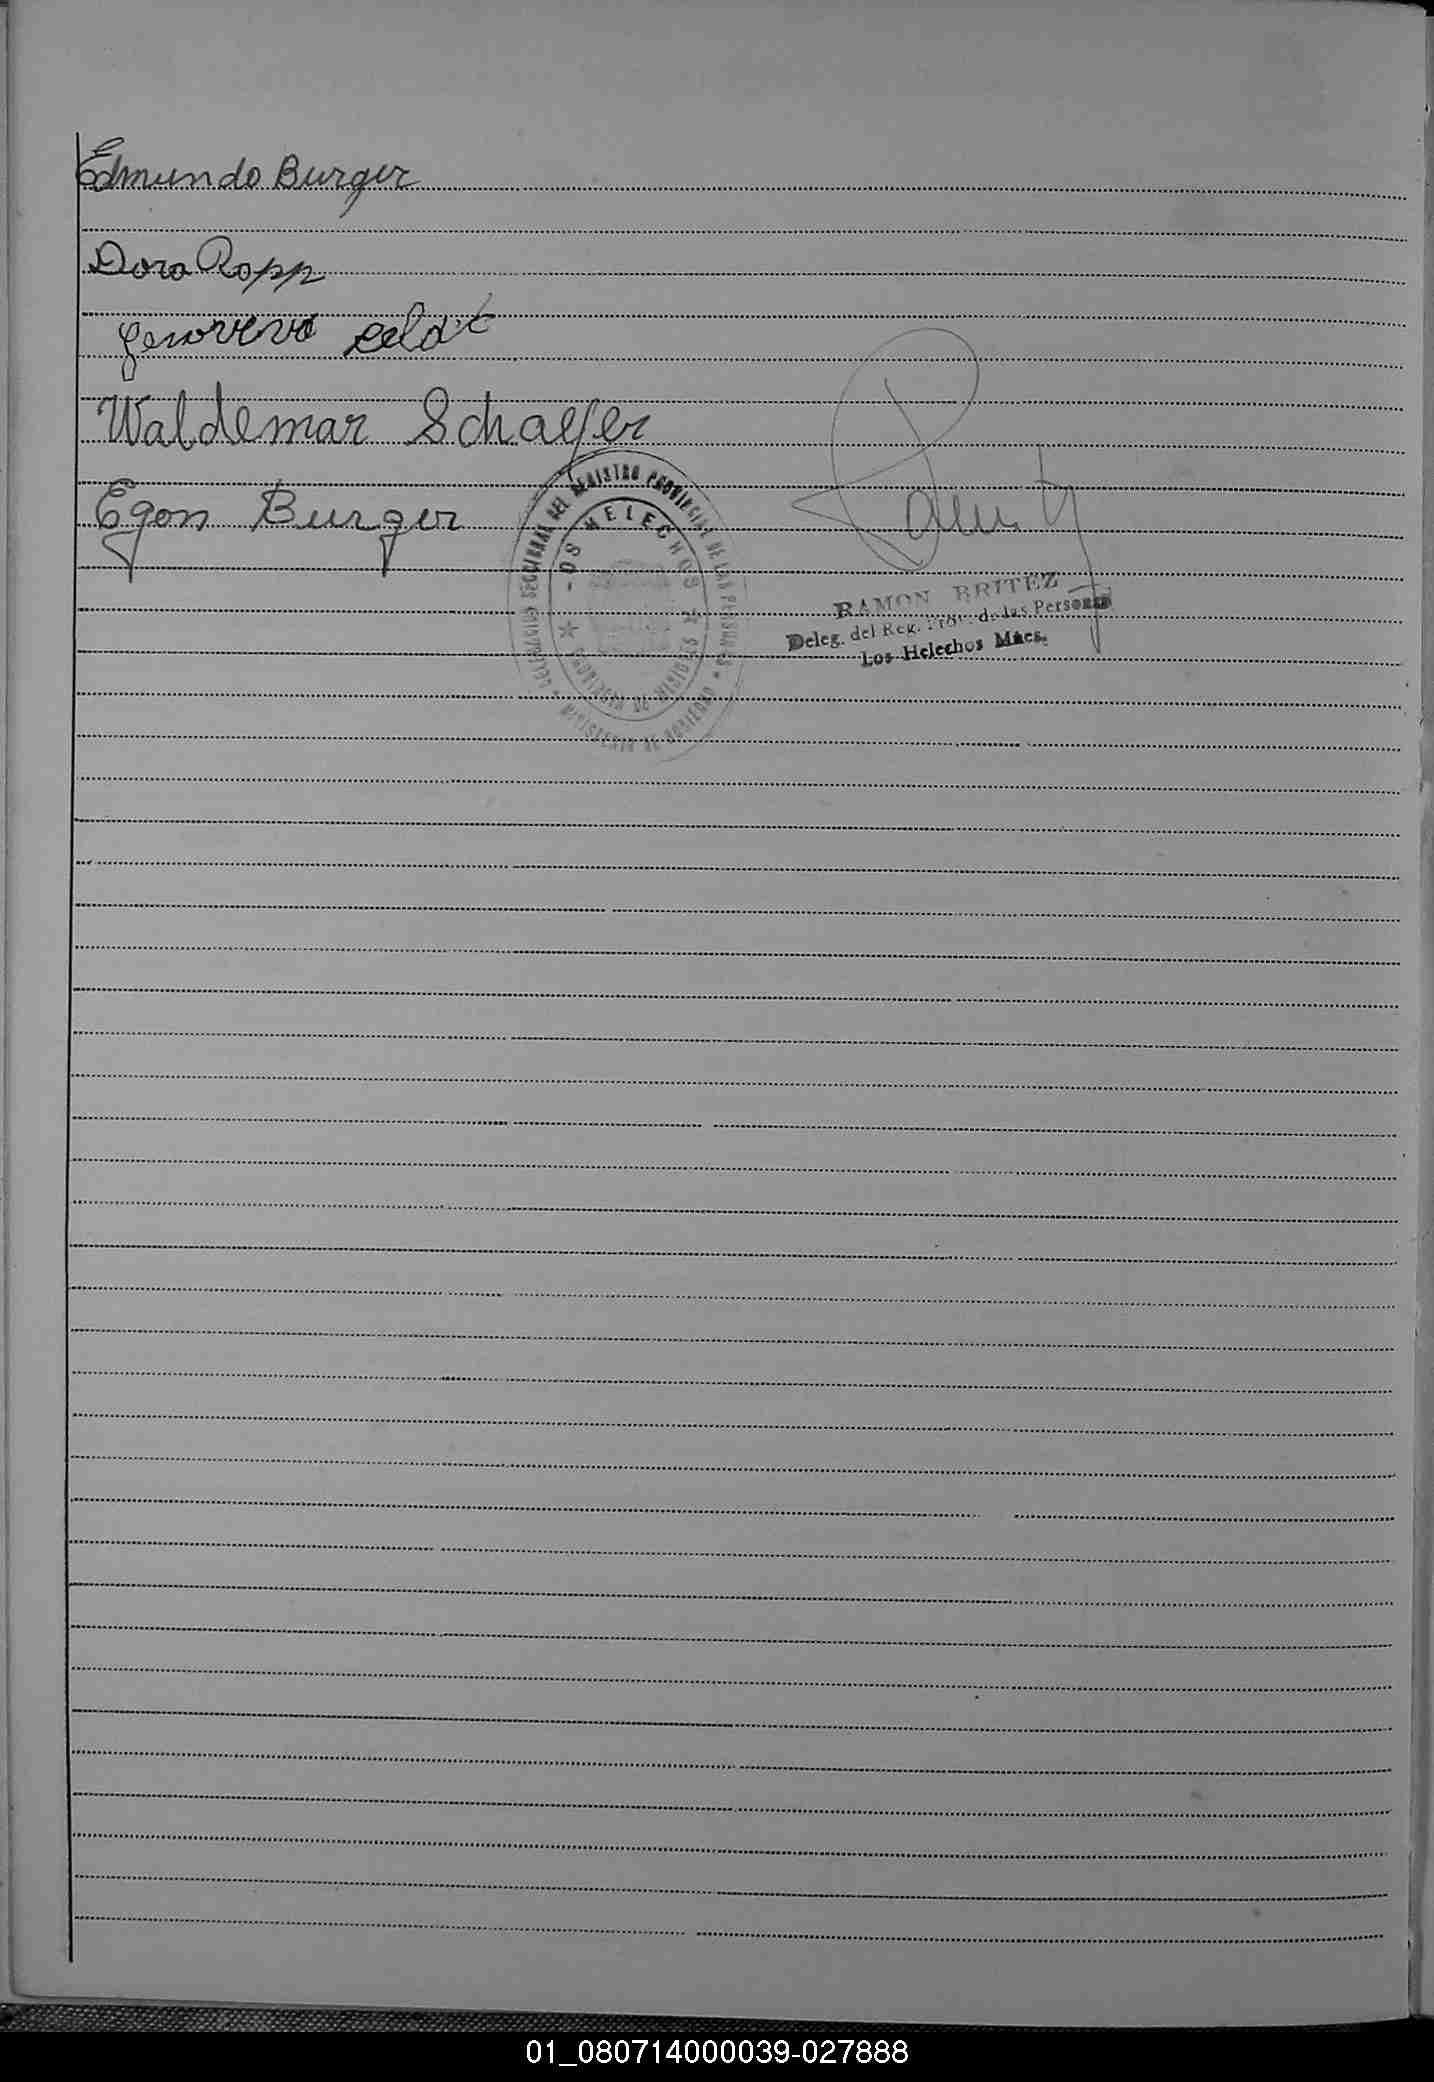 Edmundo Burger
Dora Ropp
Genoveva
Waldemar Schaefer
Egon Burger
DELEGACION SECCIONAL DEL REGISTRO PROVINCIAL DE LAS PERSONAS * MINISTERIO DE GOBIERNO
LOS HELECHOS
PROVINCIA DE MISIONES
RAMON BRITEZ
Deleg. del Reg. Prov. de las Personas
Los Helechos Mnes.
01_080714000039-027888